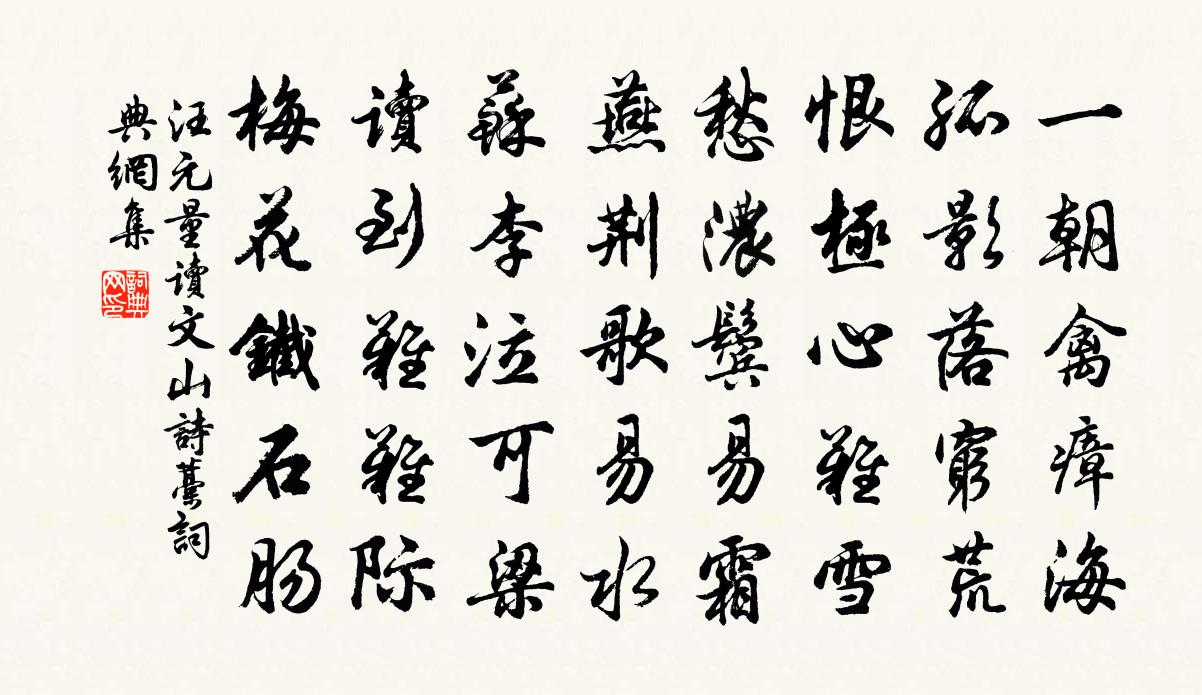 一朝禽瘴海
孤影落窮荒
恨極心難雪
愁濃鬢易霜
燕荆歌易水
蘇李泣可梁
讀到難難际
梅花鐵石肠
汪元量讀文山詩藁詞
典網集
詞典网印